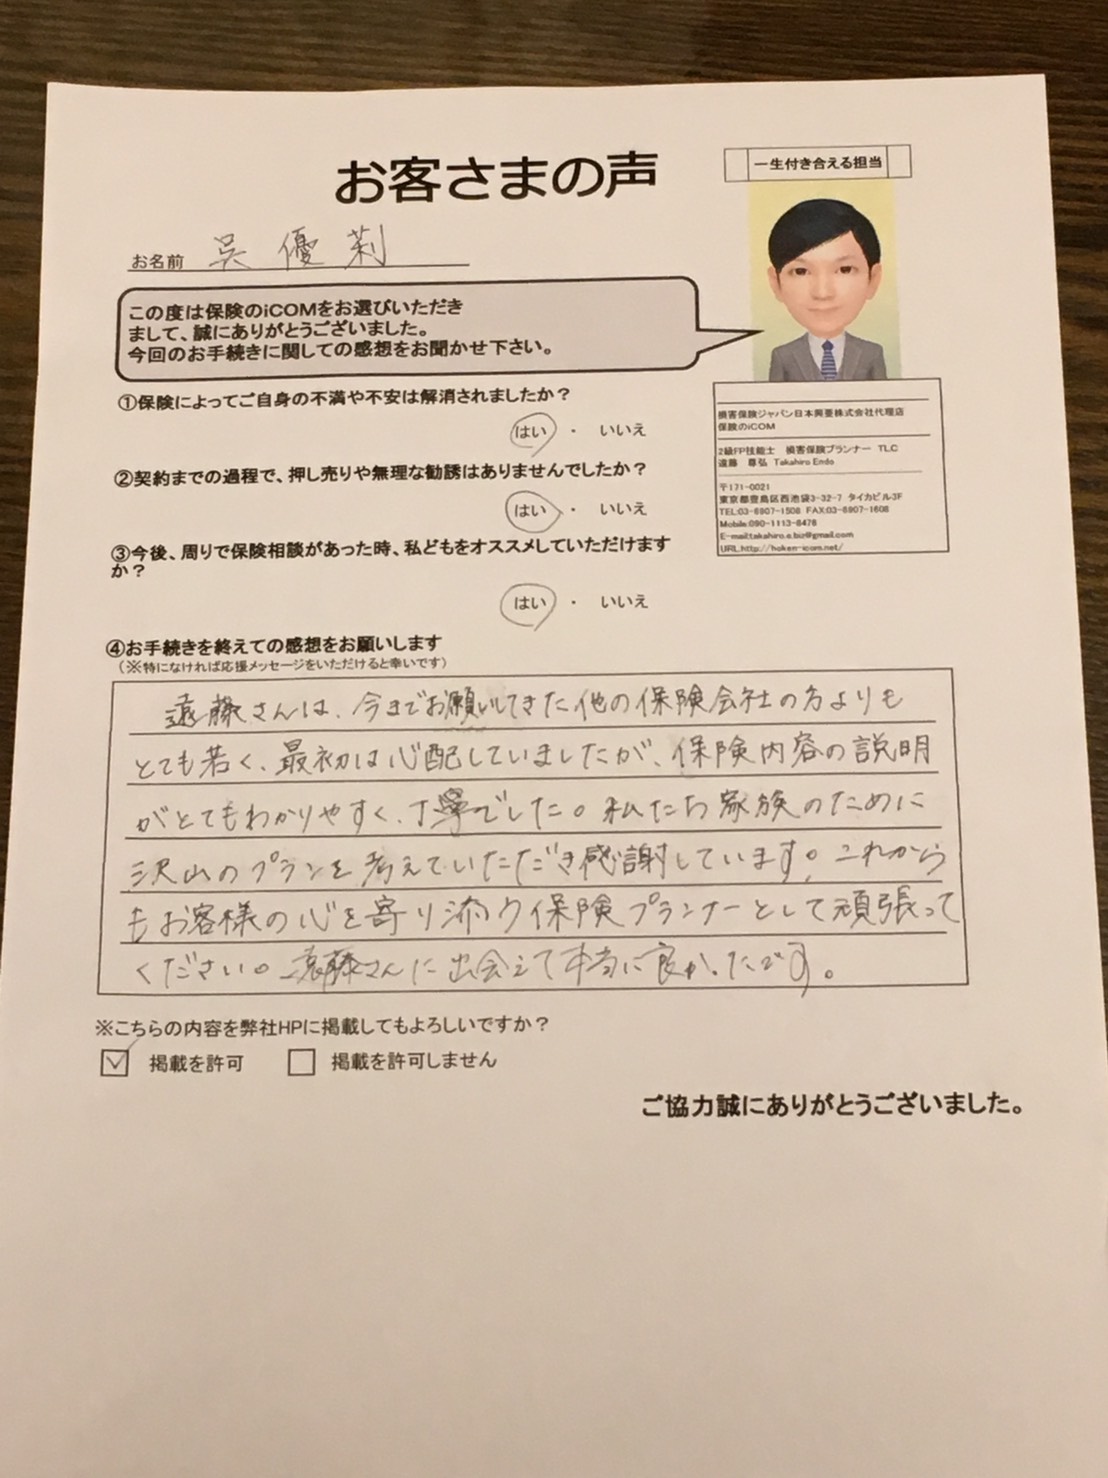 お客さまの声
一生付き合える担当
お名前 呉 優莉
この度は保険のiCOMをお選びいただき
まして、誠にありがとうございました。
今回のお手続きに関しての感想をお聞かせ下さい。
①保険によってご自身の不満や不安は解消されましたか？
はい ・ いいえ
②契約までの過程で、押し売りや無理な勧誘はありませんでしたか？
はい ・ いいえ
③今後、周りで保険相談があった時、私どもをオススメしていただけます
か？
はい ・ いいえ
損害保険ジャパン日本興亜株式会社代理店
保険のiCOM
2級FP技能士 損害保険プランナー TLC
遠藤 尊弘 Takahiro Endo
〒171-0021
東京都豊島区西池袋3-32-7 タイカビル3F
TEL:03-6907-1508 FAX:03-6907-1608
Mobile:090-1113-8478
E-mail:takahiro.e.biz@gmail.com
URL:http://hoken-icom.net/
④お手続きを終えての感想をお願いします
（※特になければ応援メッセージをいただけると幸いです）
遠藤さんは、今までお願いしてきた他の保険会社の方よりも
とても若く、最初は心配していましたが、保険内容の説明
がとてもわかりやすく、丁寧でした。私たち家族のために
沢山のプランを考えていただき感謝しています。これから
もお客様の心を寄り添う保険プランナーとして頑張って
ください。遠藤さんに出会えて本当に良かったです。
※こちらの内容を弊社HPに掲載してもよろしいですか？
☑ 掲載を許可 □ 掲載を許可しません
ご協力誠にありがとうございました。